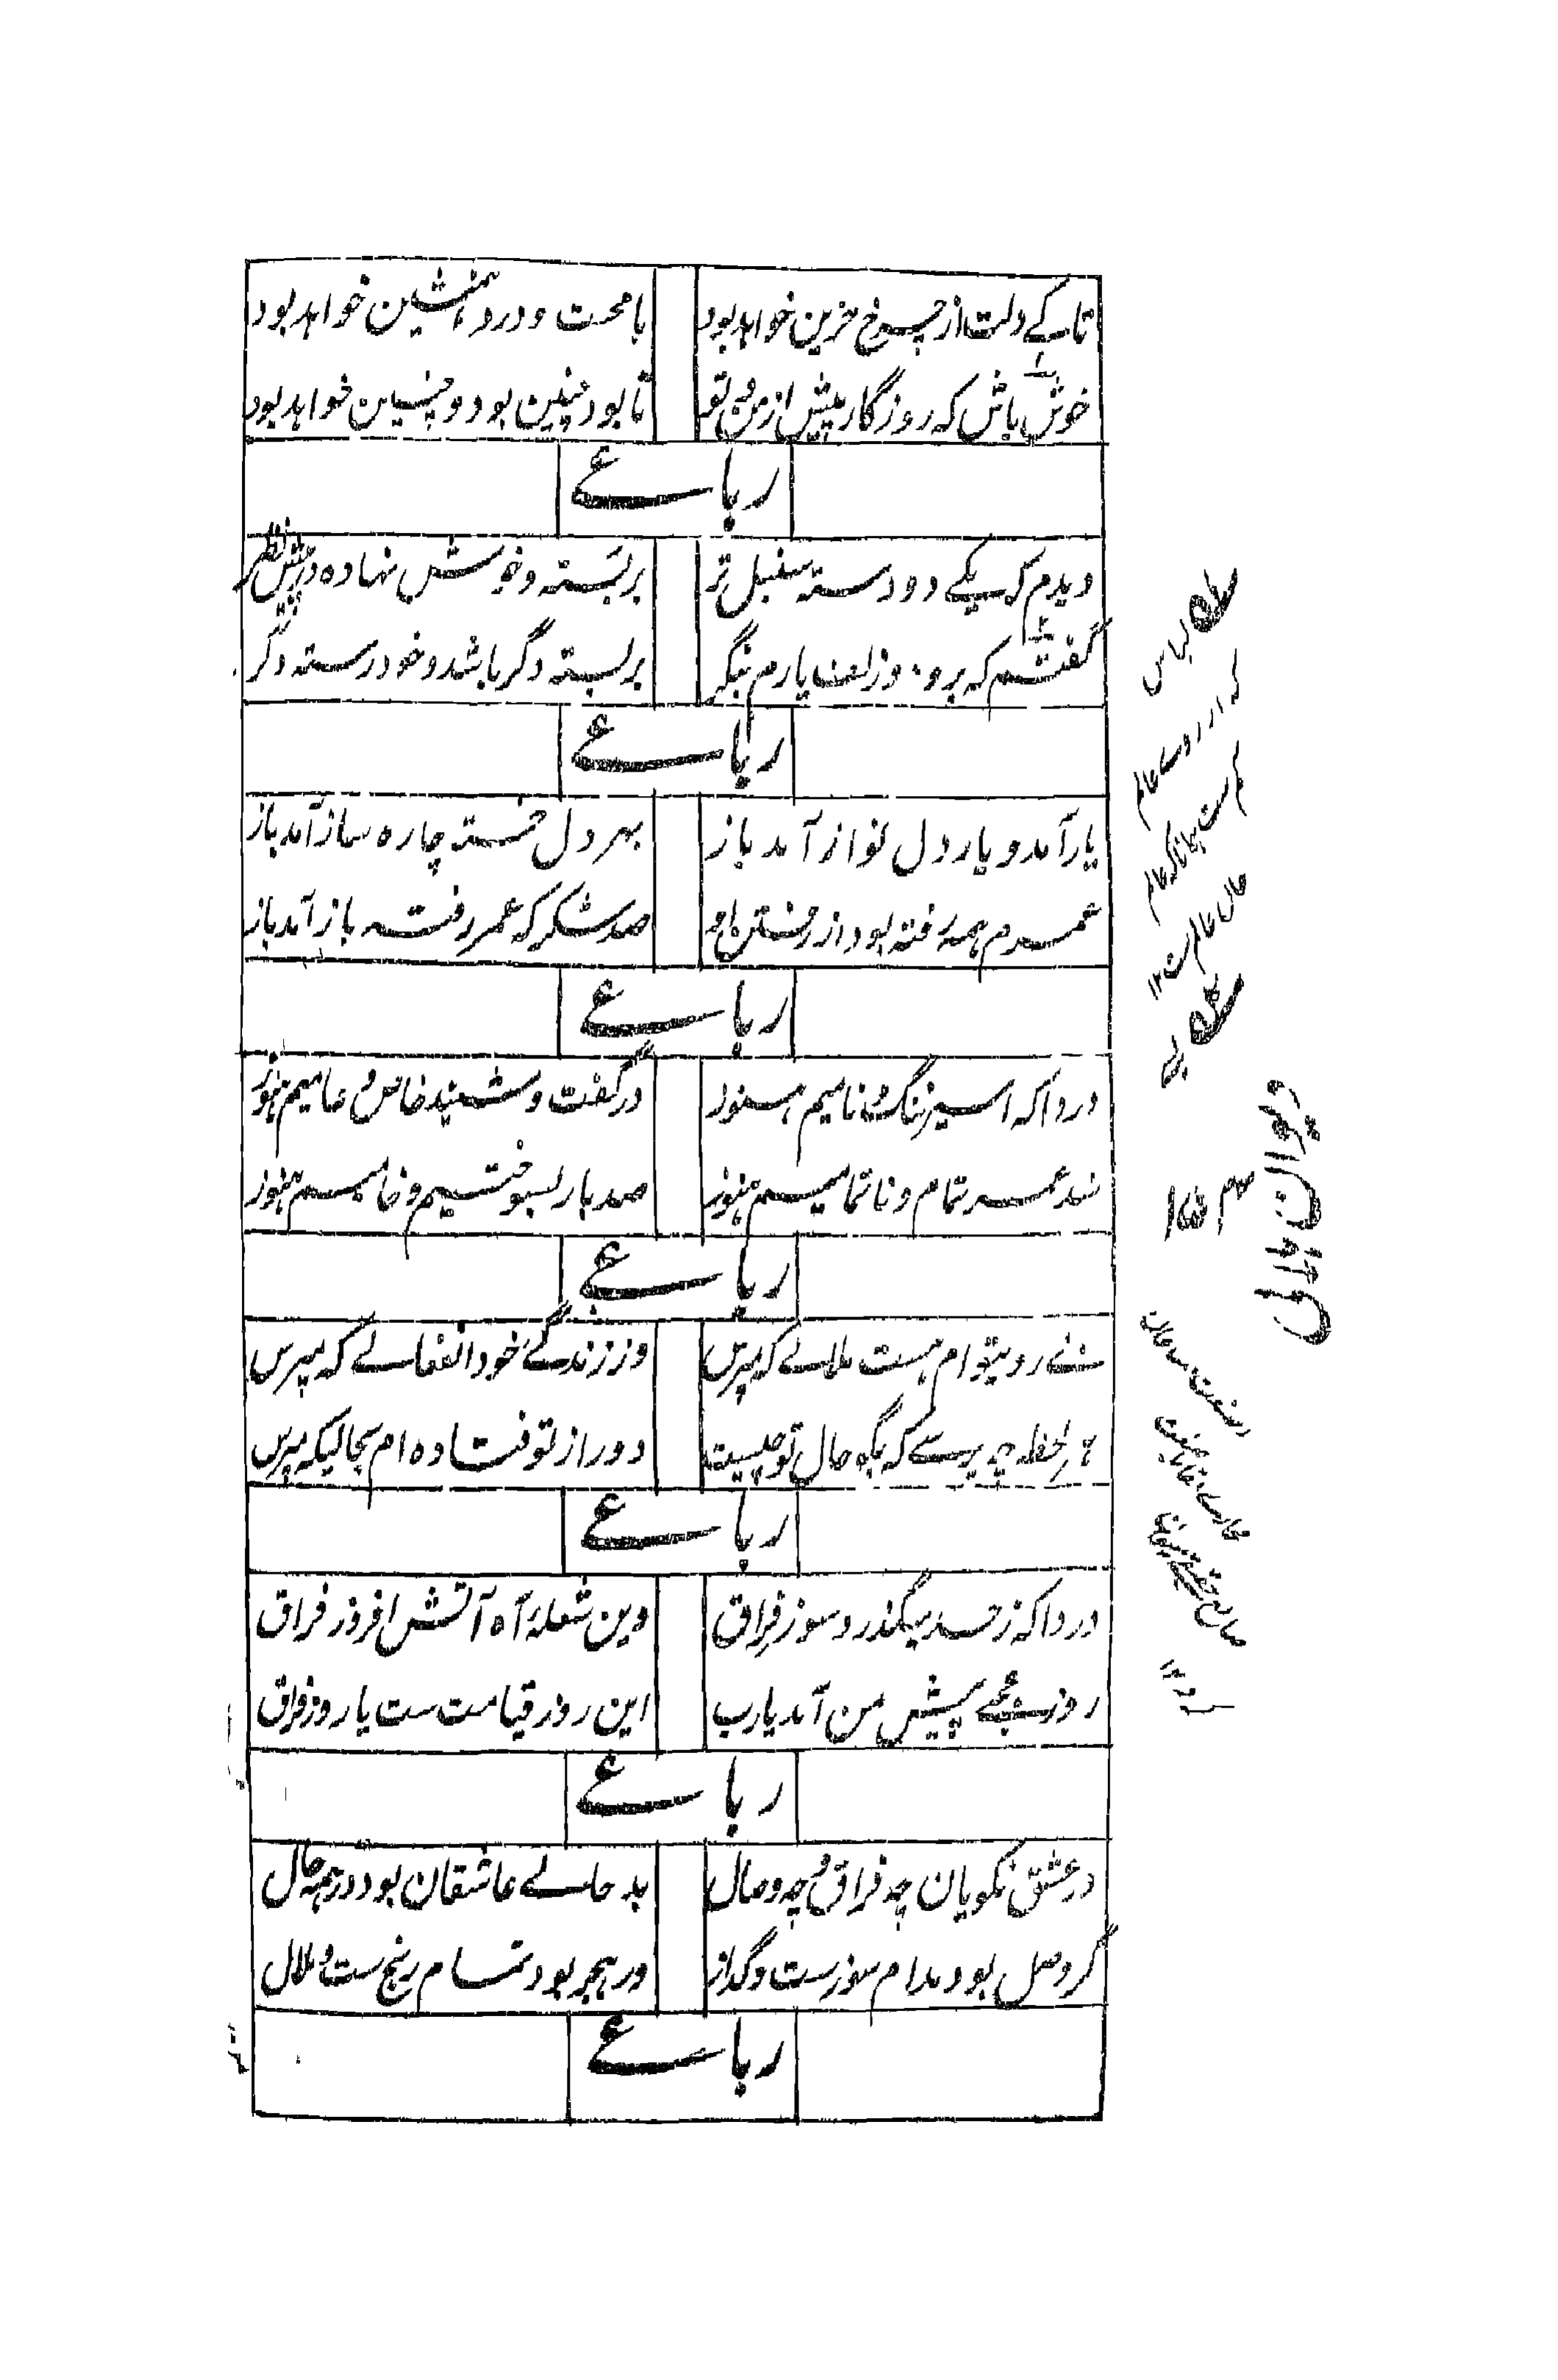 تا کے دلت از چرخ حزین خواهد بود
با محنت و درد همنشین خواهد بود
خوش باش که روزگار پیش از من و تو
تا بود چنین بود و چنین خواهد بود
رباعے
دیدم که یکے دو دسته سنبل تر
بر بسته و خوش نهاده در پیش نظر
گفتم که برو و زلف یارم بنگر
بر بسته دگر باشد و خود رسته دگر
رباعے
یار آمد و یار دل نواز آمد باز
بهر دل خسته چاره ساز آمد باز
عمرم همه رفته بود از رفتن او
صد شکر که عمر رفته باز آمد باز
رباعے
دردا که اسیر ننگ و نامیم هنوز
در گفت و شنید خاص و عامیم هنوز
شد عمر تمام و ناتمامیم هنوز
صد بار بسوختیم و خامیم هنوز
رباعے
نے روے تو ام هست ملالے که مپرس
وز زندگے خود انفعالے که مپرس
هر لحظه چه پرسے که بگو حال تو چیست
دور از تو فتاده ام بحالیکه مپرس
رباعے
دردا که ز حد میگذرد سوز فراق
وین شعلهٔ آه آتش افروز فراق
روزے عجبے پیش من آمد یارب
این روز قیامت ست یا روز فراق
رباعے
در عشق نکویان چه فراق و چه وصال
بد حالے عاشقان بود در همه حال
گر وصل بود مدام سوزست و گداز
ور هجر بود تمام رنج ست و ملال
رباعے
دیوان ہلالی